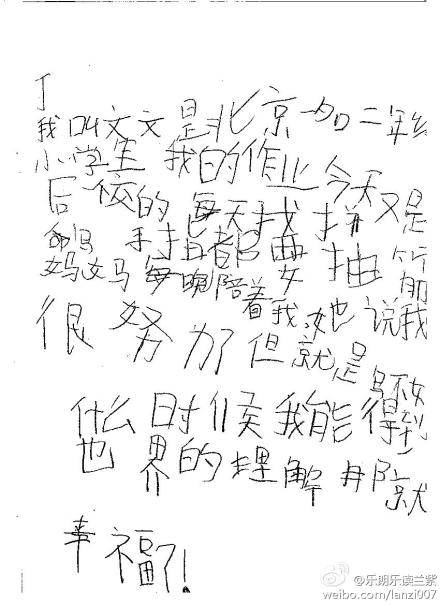 丁
我叫文文是北京一加二年
小学生 我的作业今天又是
后 的 每天找
手 都 要 抽筋
妈妈每晚陪着我,她说我
很努力了但就是
什么时候我能得到
世界的理解 那就
幸福了!
@乐朗乐读兰紫
weibo.com/lanzi007